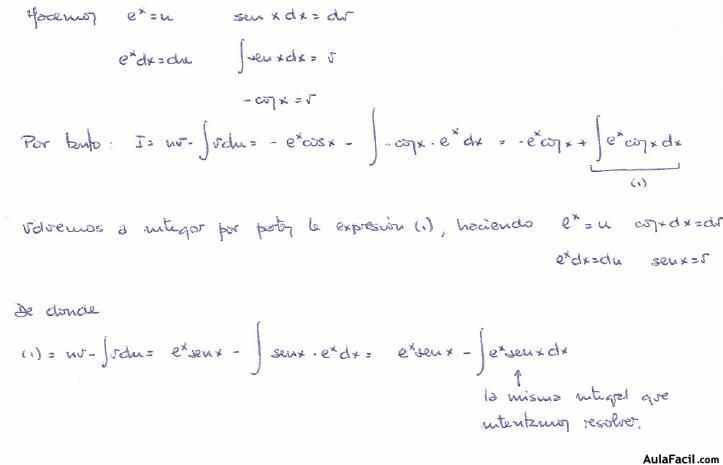 Hacemos e^x = u    sen x dx = dv
e^x dx = du    ∫ sen x dx = v
- cos x = v
Por tanto: I = uv - ∫ v du = - e^x cos x - ∫ - cos x · e^x dx = - e^x cos x + ∫ e^x cos x dx
(1)
Volvemos a integrar por partes la expresión (1), haciendo e^x = u    cos x dx = dv
e^x dx = du    sen x = v
De donde
(1) = uv - ∫ v du = e^x sen x - ∫ sen x · e^x dx = e^x sen x - ∫ e^x sen x dx
↑
la misma integral que
intentamos resolver.
AulaFacil.com